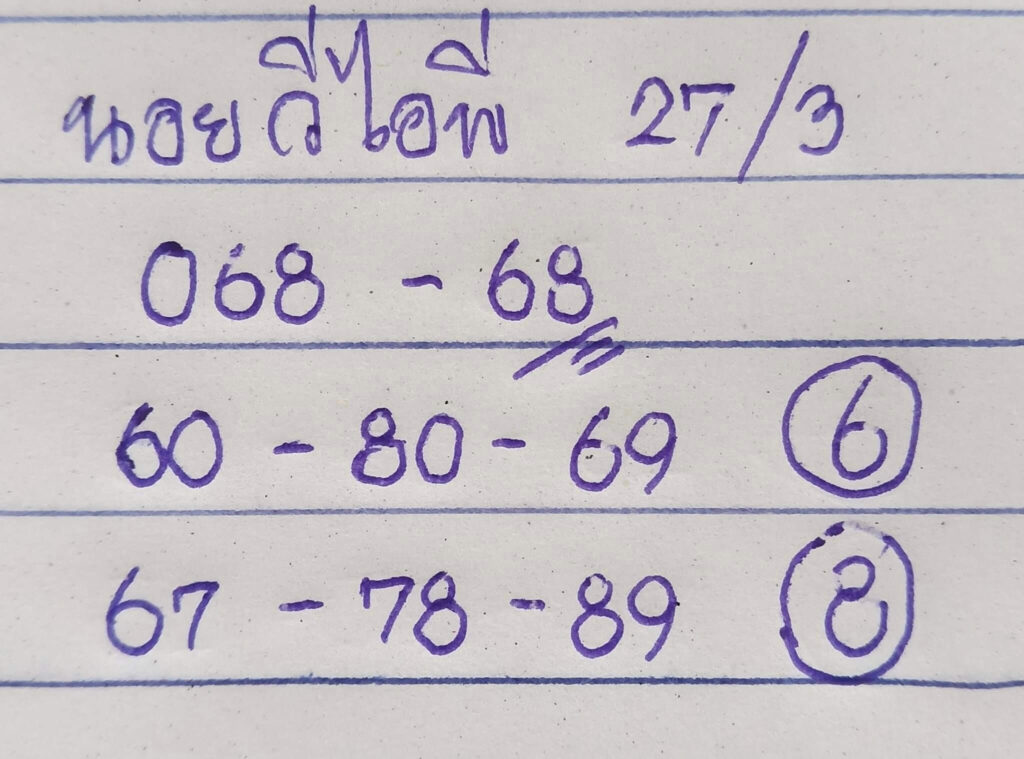 นอยวีไอพี 27/3
068 - 68
60 - 80 - 69 6
67 - 78 - 89 8